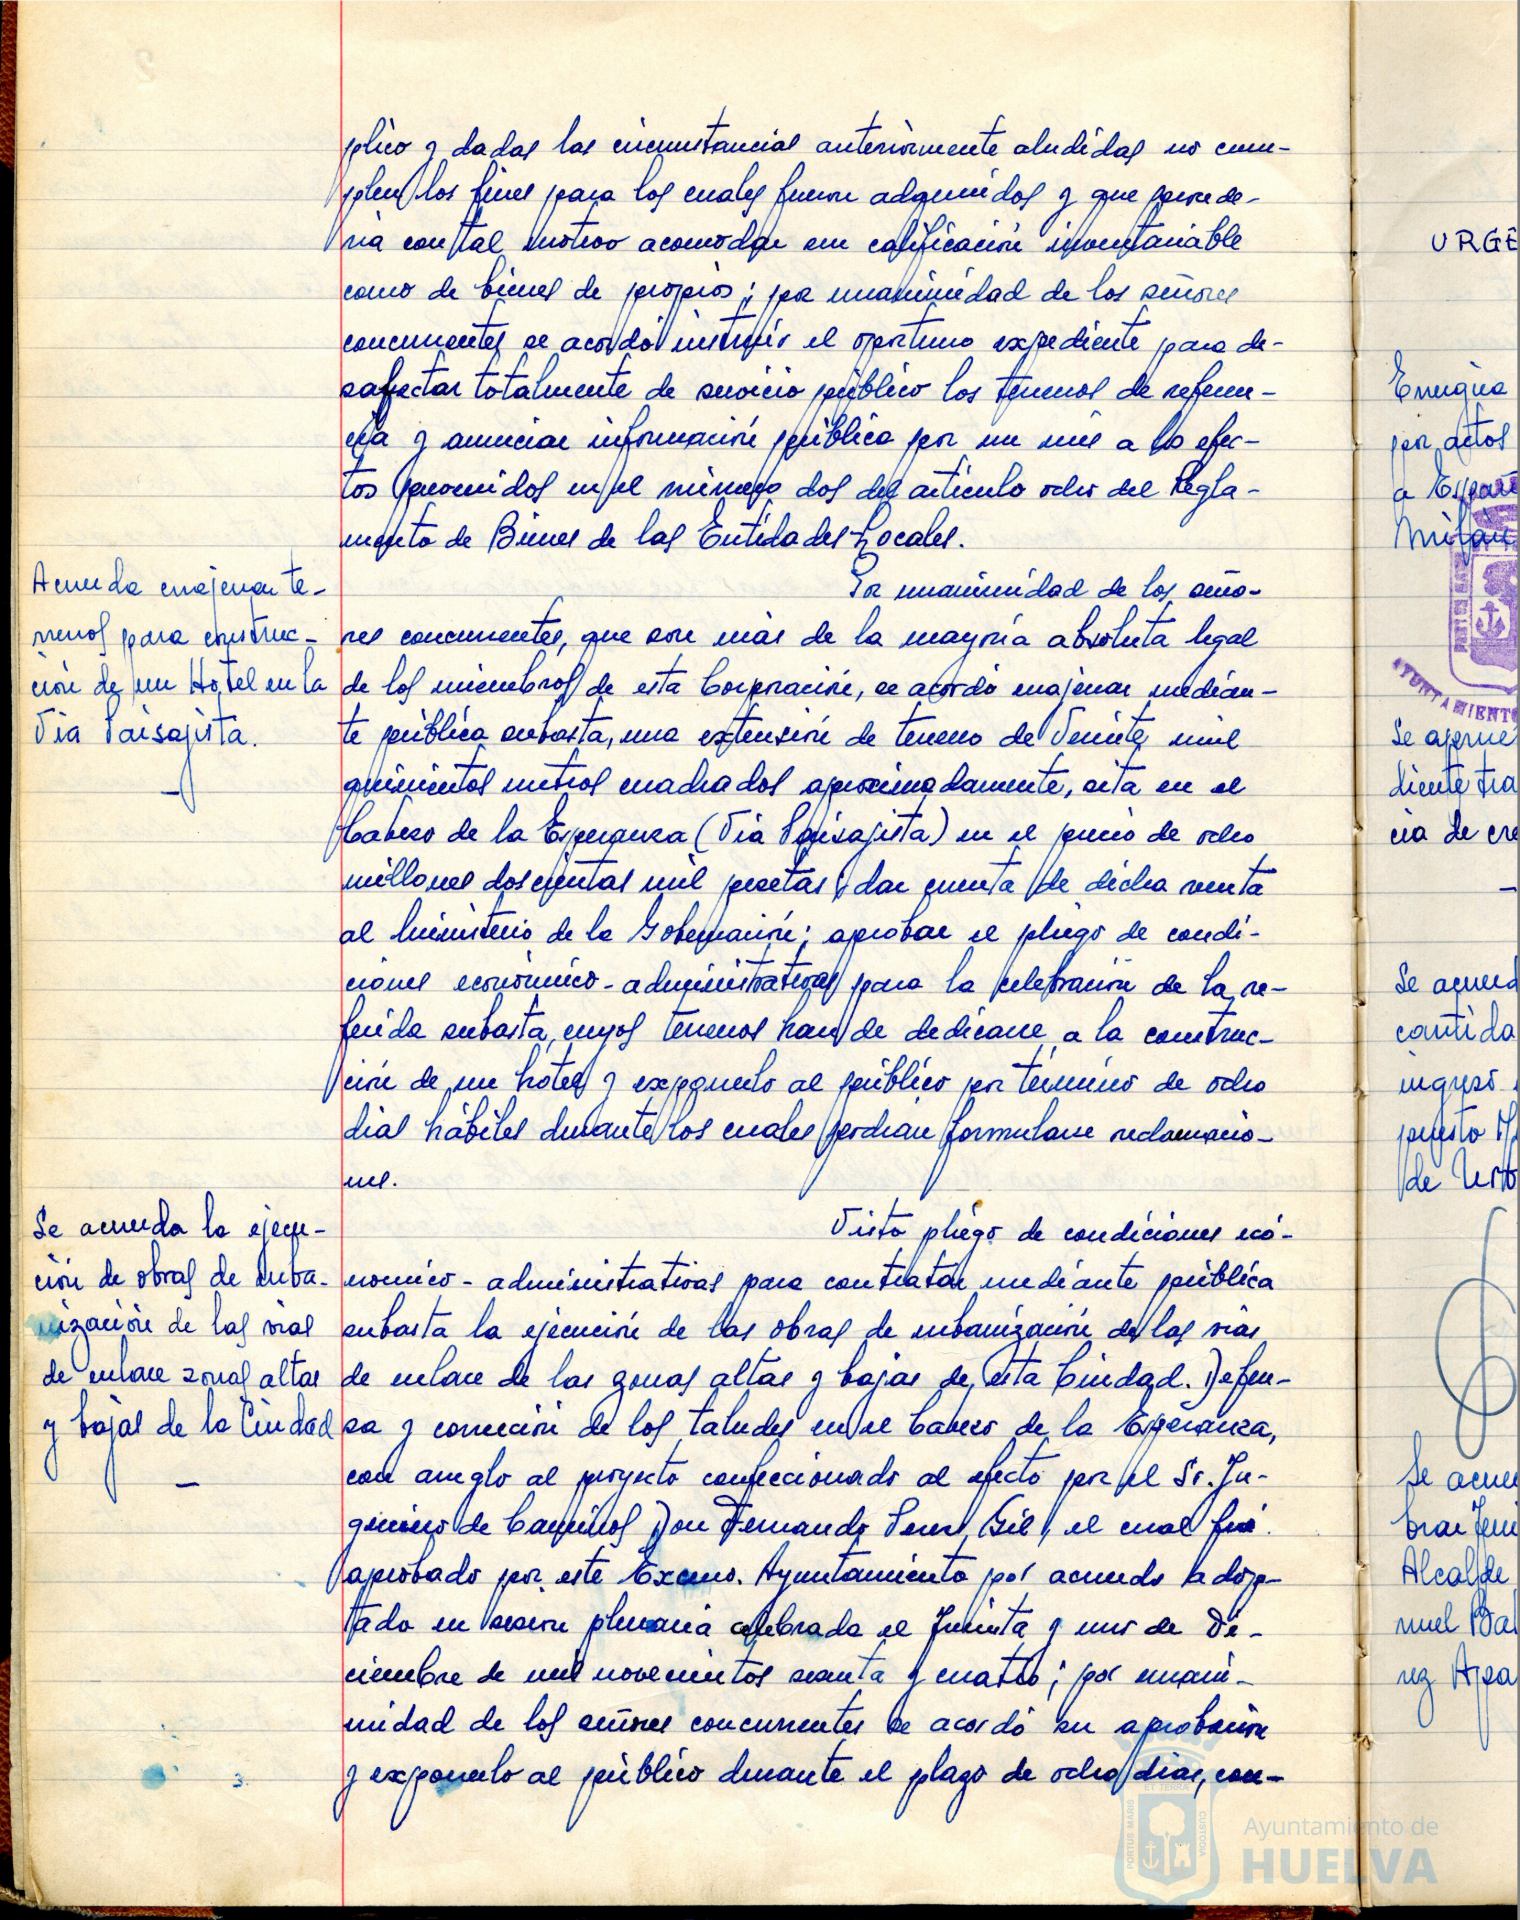 plico y dadas las circunstancias anteriormente aludidas no cum-
plen los fines para los cuales fueron adquiridos y que procede-
ria con tal motivo acomodar su calificación inventariable
como de bienes de propios; por unanimidad de los señores
concurrentes se acordó instruir el oportuno expediente para de-
safectar totalmente de servicio público los terrenos de referen-
cia y anunciar información pública por un mes a los efec-
tos prevenidos en el número dos del artículo ocho del Regla-
mento de Bienes de las Entidades Locales.
Acuerda enajenar te-
rrenos para construc-
ción de un Hotel en la
Via Paisajista.
Por unanimidad de los seño-
res concurrentes, que son más de la mayoría absoluta legal
de los miembros de esta Corporación, se acordó enajenar median-
te pública subasta, una extensión de terreno de Veinte mil
quinientos metros cuadrados aproximadamente, sita en el
Cabezo de la Esperanza (Via Paisajista) en el precio de ocho
millones doscientas mil pesetas; dar cuenta de dicha venta
al Ministerio de la Gobernación; aprobar el pliego de condi-
ciones económico-administrativas para la celebración de la re-
ferida subasta, cuyos terrenos han de dedicarse a la construc-
ción de un hotel y exponerlo al público por término de ocho
dias hábiles durante los cuales podrian formularse reclamacio-
nes.
Se acuerda la ejecu-
ción de obras de urba-
nización de las vias
de enlace zonas altas
y bajas de la Ciudad
Visto pliego de condiciones eco-
nómico-administrativas para contratar mediante pública
subasta la ejecución de las obras de urbanización de las vias
de enlace de las zonas altas y bajas de esta Ciudad. Defen-
sa y corrección de los taludes en el Cabezo de la Esperanza,
con arreglo al proyecto confeccionado al efecto por el Sr. In-
geniero de Caminos Don Fernando Perez Gil, el cual fué
aprobado por este Excmo. Ayuntamiento por acuerdo adop-
tado en sesión plenaria celebrada el Treinta y uno de Di-
ciembre de mil novecientos sesenta y cuatro; por unani-
midad de los señores concurrentes se acordó su aprobación
y exponerlo al público durante el plazo de ocho dias, con-
3.
URGE
Energia
por actos
a Españ
Milan
AYUNTAMIENTO
Se aprue
diente tra
cia de cre
Se acuerd
cantida
ingreso
puesto
de
Se acue
brar
Alcalde
nuel Ba
rez Apa
PORTUS MARIS
ET TERRAE
CUSTODIA
Ayuntamiento de
HUELVA